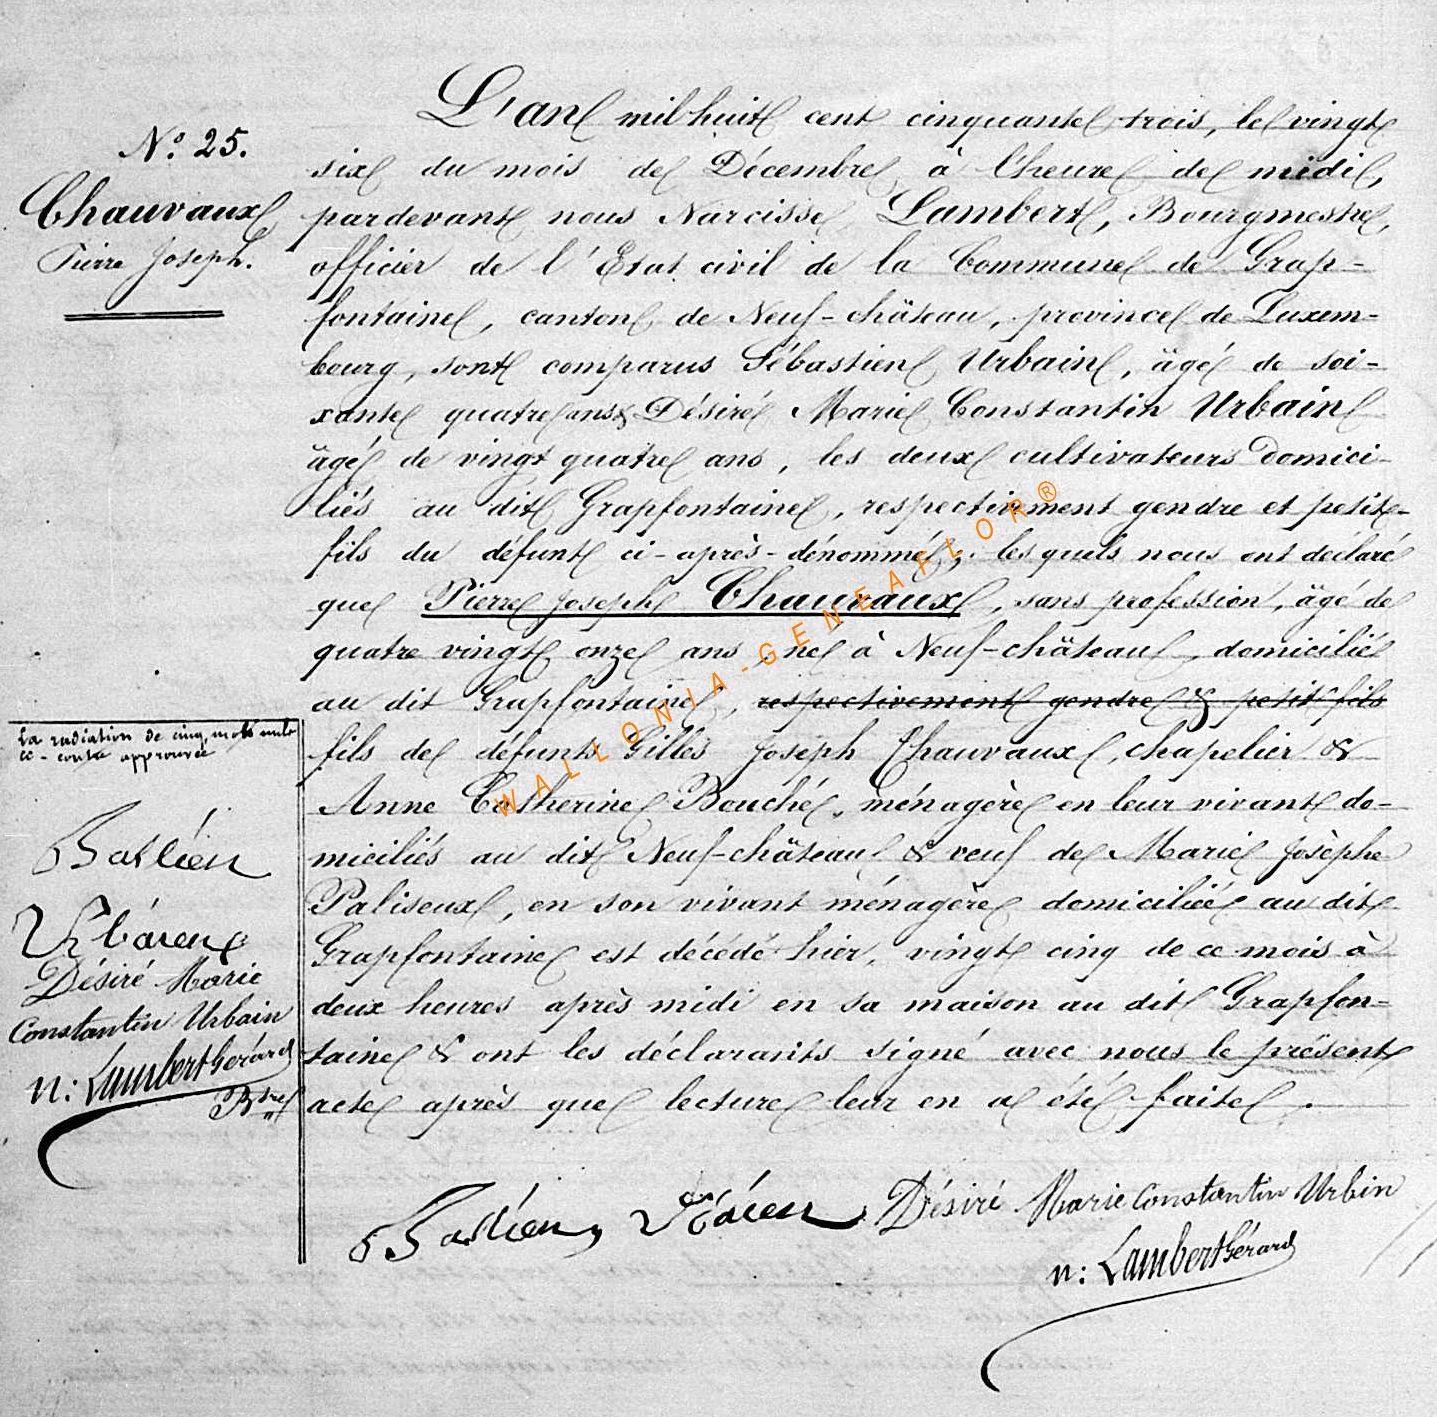 N.° 25.
Chauvaux
Pierre Joseph.
L'an mil huit cent cinquante trois, le vingt
six du mois de Décembre à l'heure de midi,
pardevant nous Narcisse Lambert, Bourgmestre,
officier de l'Etat civil de la Commune de Grap-
fontaine, canton de Neuf-château, province de Luxem-
bourg, sont comparus Sébastien Urbain, âgé de soi-
xante quatre ans & Désiré Marie Constantin Urbain
âgé de vingt quatre ans, les deux cultivateurs domici-
liés au dit Grapfontaine, respectivement gendre et petit-
fils du défunt ci-après-dénommé; lesquels nous ont déclaré
que Pierre Joseph Chauvaux, sans profession, âgé de
quatre vingt onze ans, né à Neuf-château, domicilié
au dit Grapfontaine, respectivement gendre & petit fils
fils de défunts Gilles Joseph Chauvaux, chapelier &
Anne Catherine Bouché, ménagère en leur vivant do-
miciliés au dit Neuf-château & veuf de Marie Josèphe
Paliseux, en son vivant ménagère domiciliée au dit
Grapfontaine est décédé hier, vingt cinq de ce mois à
deux heures après midi en sa maison au dit Grapfon-
taine & ont les déclarants signé avec nous le présent
acte après que lecture leur en a été faite.
La radiation de cinq mots nuls
ci-contre approuvée
Bastien
Urbaien
Désiré Marie
Constantin Urbain
n: Lambert Gérard
Btre
Bastien Urbaien Désiré Marie Constantin Urbin
n: Lambert Gérard
WALLONIA-GENEAFLOR®